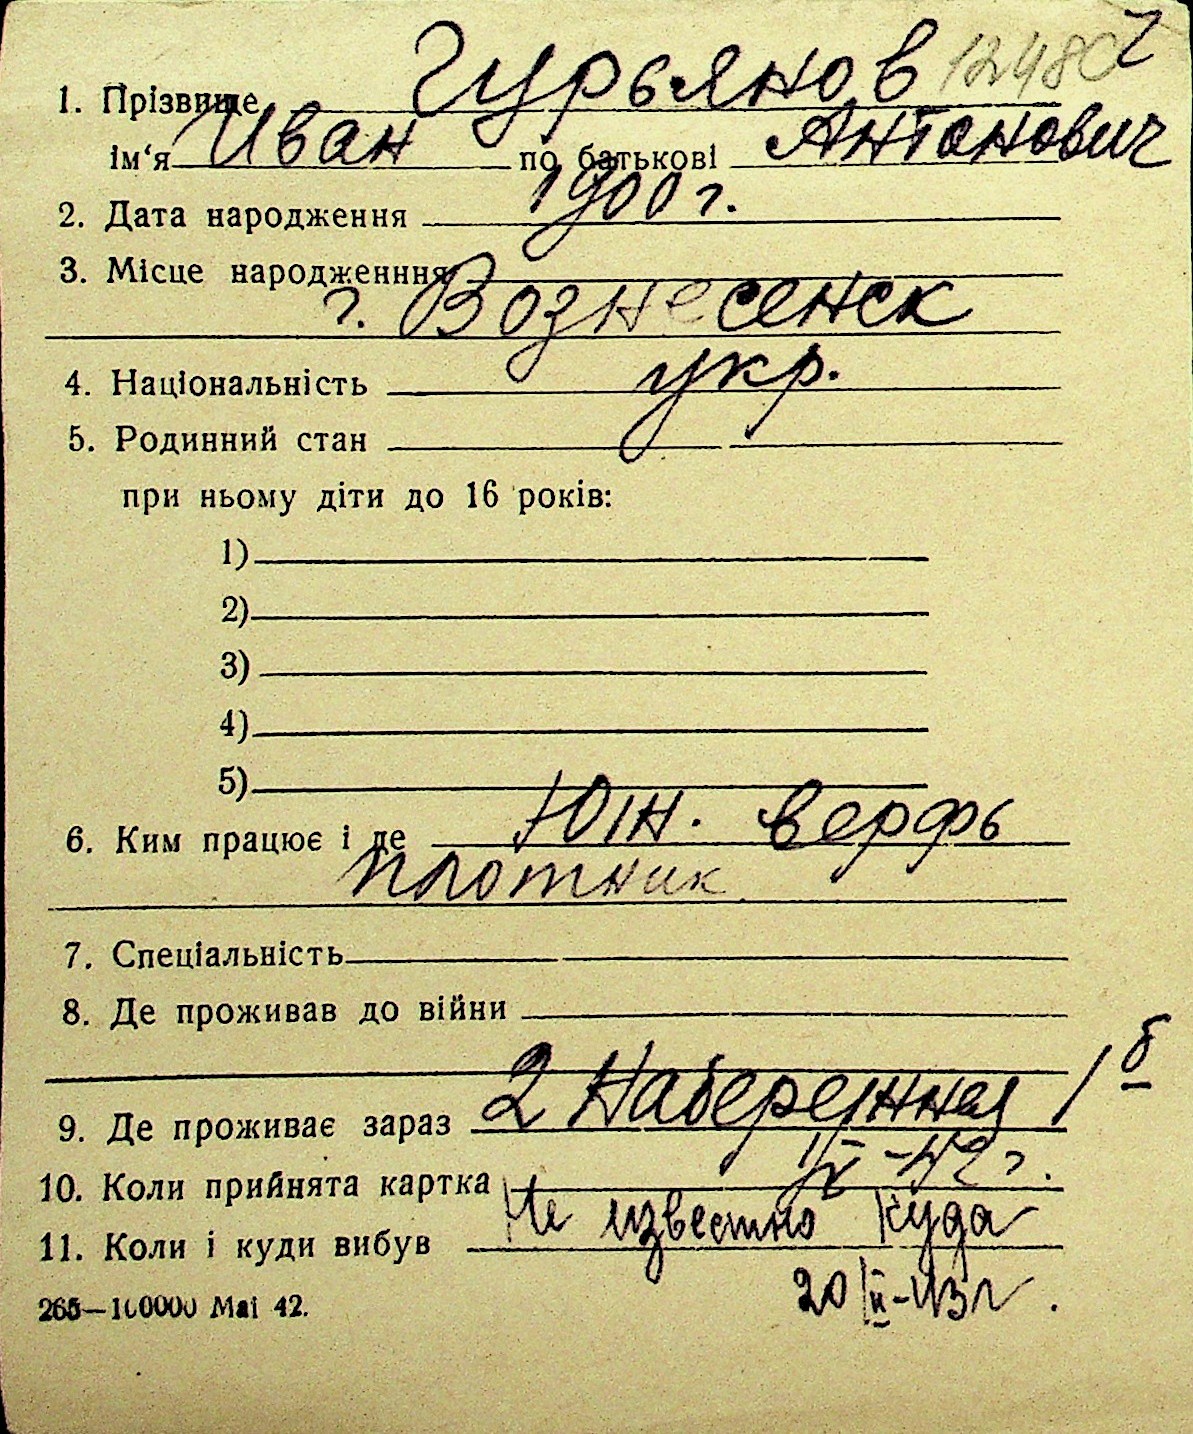 12480 г
1. Прізвище Гурьянов
ім‘я Иван по батькові Антонович
2. Дата народження 1900 г.
3. Місце народженння
г. Вознесенск
4. Національність укр.
5. Родинний стан
при ньому діти до 16 років:
1)
2)
3)
4)
5)
6. Ким працює і де Южн. верфь
плотник
7. Спеціальність
8. Де проживав до війни
9. Де проживає зараз 2 Набережная 1 б
10. Коли прийнята картка -42 г.
11. Коли і куди вибув Не известно куда
20/ii-43 г.
265—100000 Mai 42.